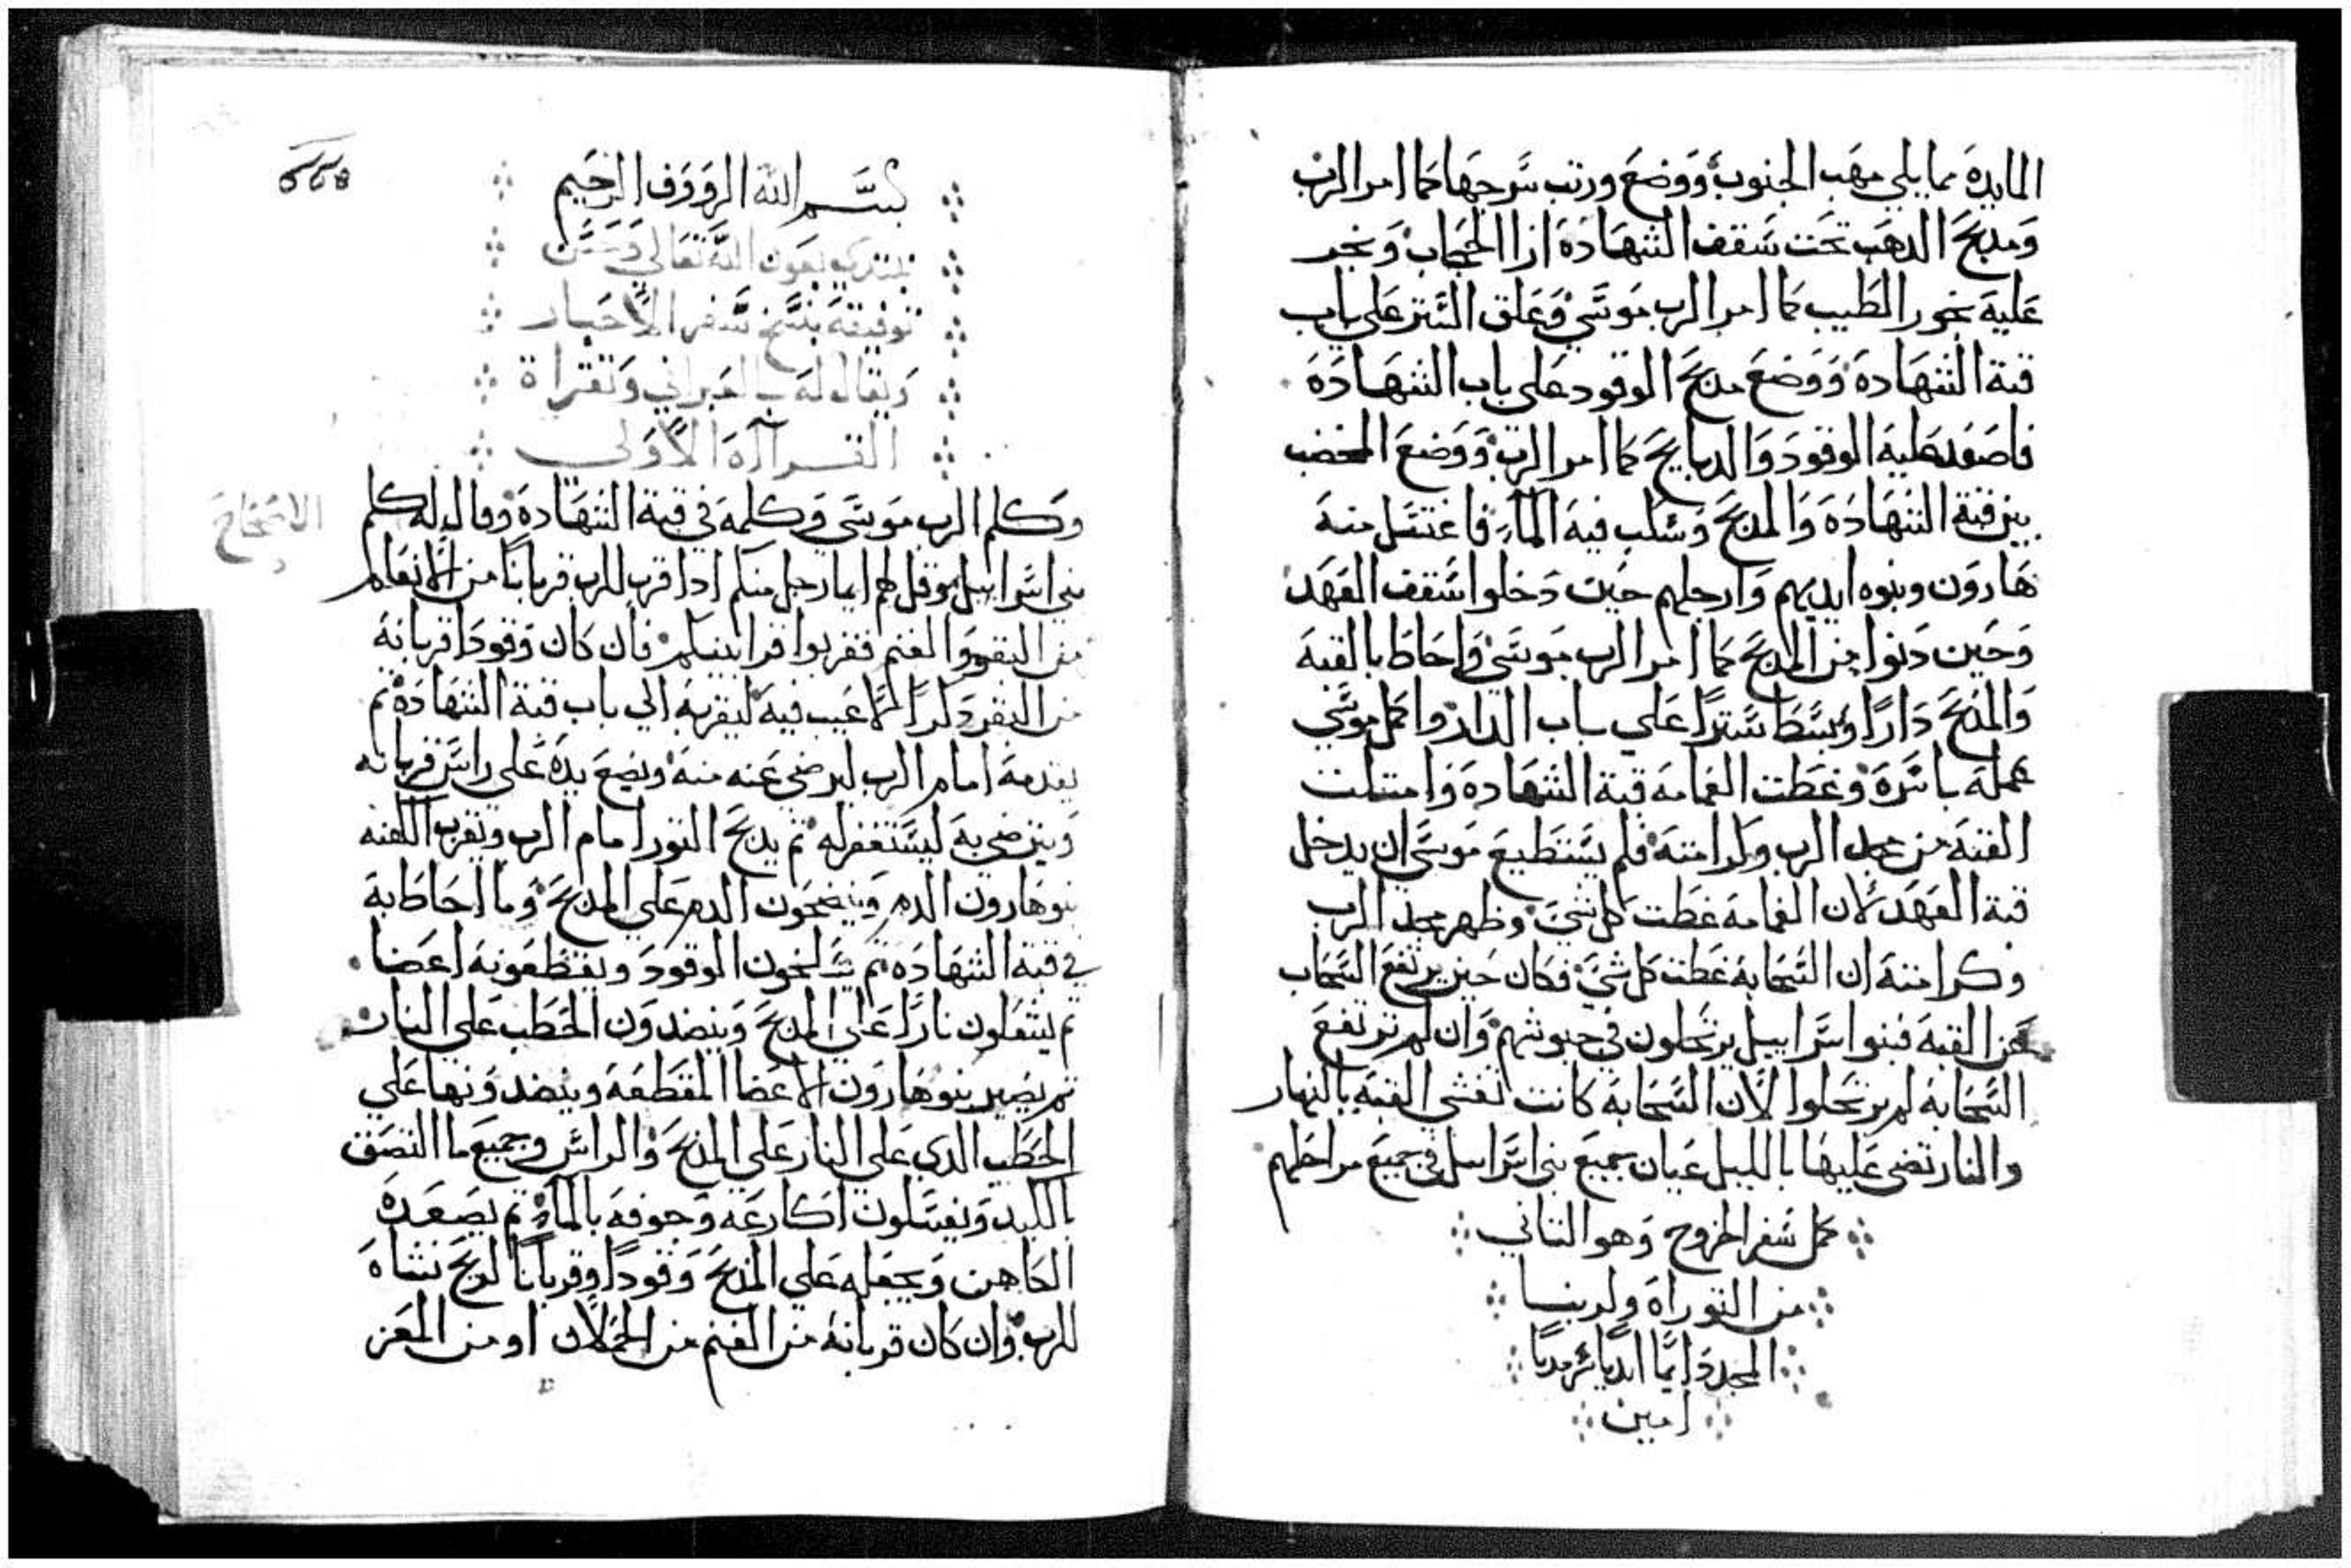 المايدة مما يلي مهب الجنوب ووضع ورتب سرجها كما امر الرب
ومدبح الدهب تحت سقف الشهادة ازا الحجاب وبخر
عليه بخور الطيب كما امر الرب موسي وعلق الستر علي باب
قبة الشهادة ووضع مدبح الوقود علي باب الشهادة
فاصعد عليه الوقود والدبايح كما امر الرب ووضع المخضب
بين قبة الشهادة والمدبح وسكب فيه الماء فاغتسل منه
هارون وبنوه ايديهم وارجلهم حين دخلوا سقف العهد
وحين دنوا من المدبح كما امر الرب موسي واحاط بالقبة
والمدبح دارا وبسط سترا علي باب الدار واكمل موسي
عمله باسره وغطت الغمامة قبة الشهادة وامتلت
القبة من مجد الرب وكرامته فلم يستطيع موسي ان يدخل
قبة العهد لان الغمامة غطت كل شي وظهر مجد الرب
وكرامته ان السحابة غطت كل شي فكان حين يرتفع السحاب
عن القبة فبنوا اسراييل يرتحلون في جيوشهم وان لم ترتفع
السحابة لم يرتحلوا لان السحابة كانت تغشي القبة بالنهار
والنار تضي عليها بالليل عيان جميع بني اسراييل في جميع مراحلهم
كمل سفر الخروج وهو التاني
من التوراة ولربنا
المجد دايما ابديا سرمديا
امين
بسم الله الرووف الرحيم
نبتدي بعون الله تعالي وحسن
توفيقه بنسخ سفر الاحبار
ويقال له بالعبراني وتقراة
القرااة الاولي
وكلم الرب موسي وكلمه في قبة الشهادة وقال له كلم
الاصحاح
بني اسراييل وقل لهم ايما رجل منكم ادا قرب للرب قربانا من الانعام
من البقر والغنم فقربوا قرابينكم فان كان وقودا قربانه
من البقر دكرا لا عيب فيه ليقربه الي باب قبة الشهادة تم
يقدمه امام الرب ليرضي عنه منه ويضع يده علي راس قربانه
ويترضي به ليستغفر له تم يدبح التور امام الرب ويقرب الكهنه
بنو هارون الدم وينضحون الدم علي المدبح وما احاط به
في قبة الشهادة تم يسلخون الوقود ويقطعونه اعضا
تم يشعلون نارا علي المدبح وينضدون الحطب علي النار
تم يصير بنو هارون الاعضا المقطعة وينضدونها علي
الحطب الدي علي النار علي المدبح والراس وجميع ما التصق
بالكبد ويغسلون اكارعه وجوفه بالماء تم يصعده
الكاهن ويجعله علي المدبح وقودا وقربانا لريح نشاه
للرب وان كان قربانه من الغنم من الحملان او من المعز